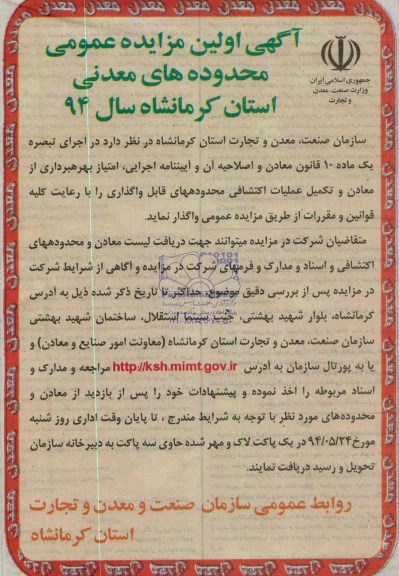 آگهی اولین مزایده عمومی
محدوده های معدنی
استان کرمانشاه سال ۹۴
جمهوری اسلامی ایران
وزارت صنعت، معدن
و تجارت
سازمان صنعت، معدن و تجارت استان کرمانشاه در نظر دارد در اجرای تبصره
یک ماده ۱۰ قانون معادن و اصلاحیه آن و آییننامه اجرایی، امتیاز بهرهبرداری از
معادن و تکمیل عملیات اکتشافی محدودههای قابل واگذاری را با رعایت کلیه
قوانین و مقررات از طریق مزایده عمومی واگذار نماید.
متقاضیان شرکت در مزایده میتوانند جهت دریافت لیست معادن و محدودههای
اکتشافی و اسناد و مدارک و فرمهای شرکت در مزایده و آگاهی از شرایط شرکت
در مزایده پس از بررسی دقیق موضوع حداکثر تا تاریخ ذکر شده ذیل به آدرس
کرمانشاه، بلوار شهید بهشتی، جنب سینما استقلال، ساختمان شهید بهشتی
سازمان صنعت، معدن و تجارت استان کرمانشاه (معاونت امور صنایع و معادن) و
یا به پورتال سازمان به آدرس http://ksh.mimt.gov.ir مراجعه و مدارک و
اسناد مربوطه را اخذ نموده و پیشنهادات خود را پس از بازدید از معادن و
محدودههای مورد نظر با توجه به شرایط مندرج ، تا پایان وقت اداری روز شنبه
مورخ ۹۴/۰۵/۲۴ در یک پاکت لاک و مهر شده حاوی سه پاکت به دبیرخانه سازمان
تحویل و رسید دریافت نمایند.
روابط عمومی سازمان صنعت و معدن و تجارت
استان کرمانشاه